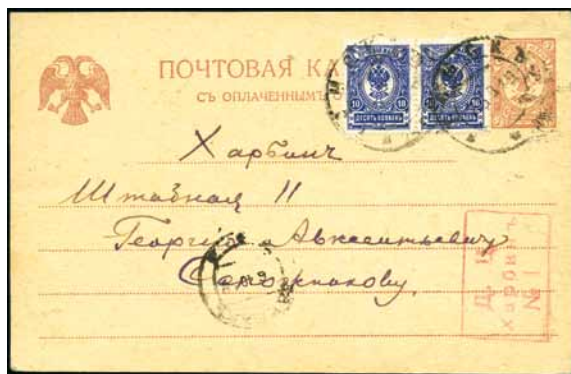 ПОЧТОВАЯ КА
СЪ ОПЛАЧЕННЫМЪ
10 10
ДЕСЯТЬ КОПѢЕКЪ
10 10
ДЕСЯТЬ КОПѢЕКЪ
Харбинъ
Штабная 11
Георгію Авксентьевичу
Д. Ц.
Харбинъ
№ 1